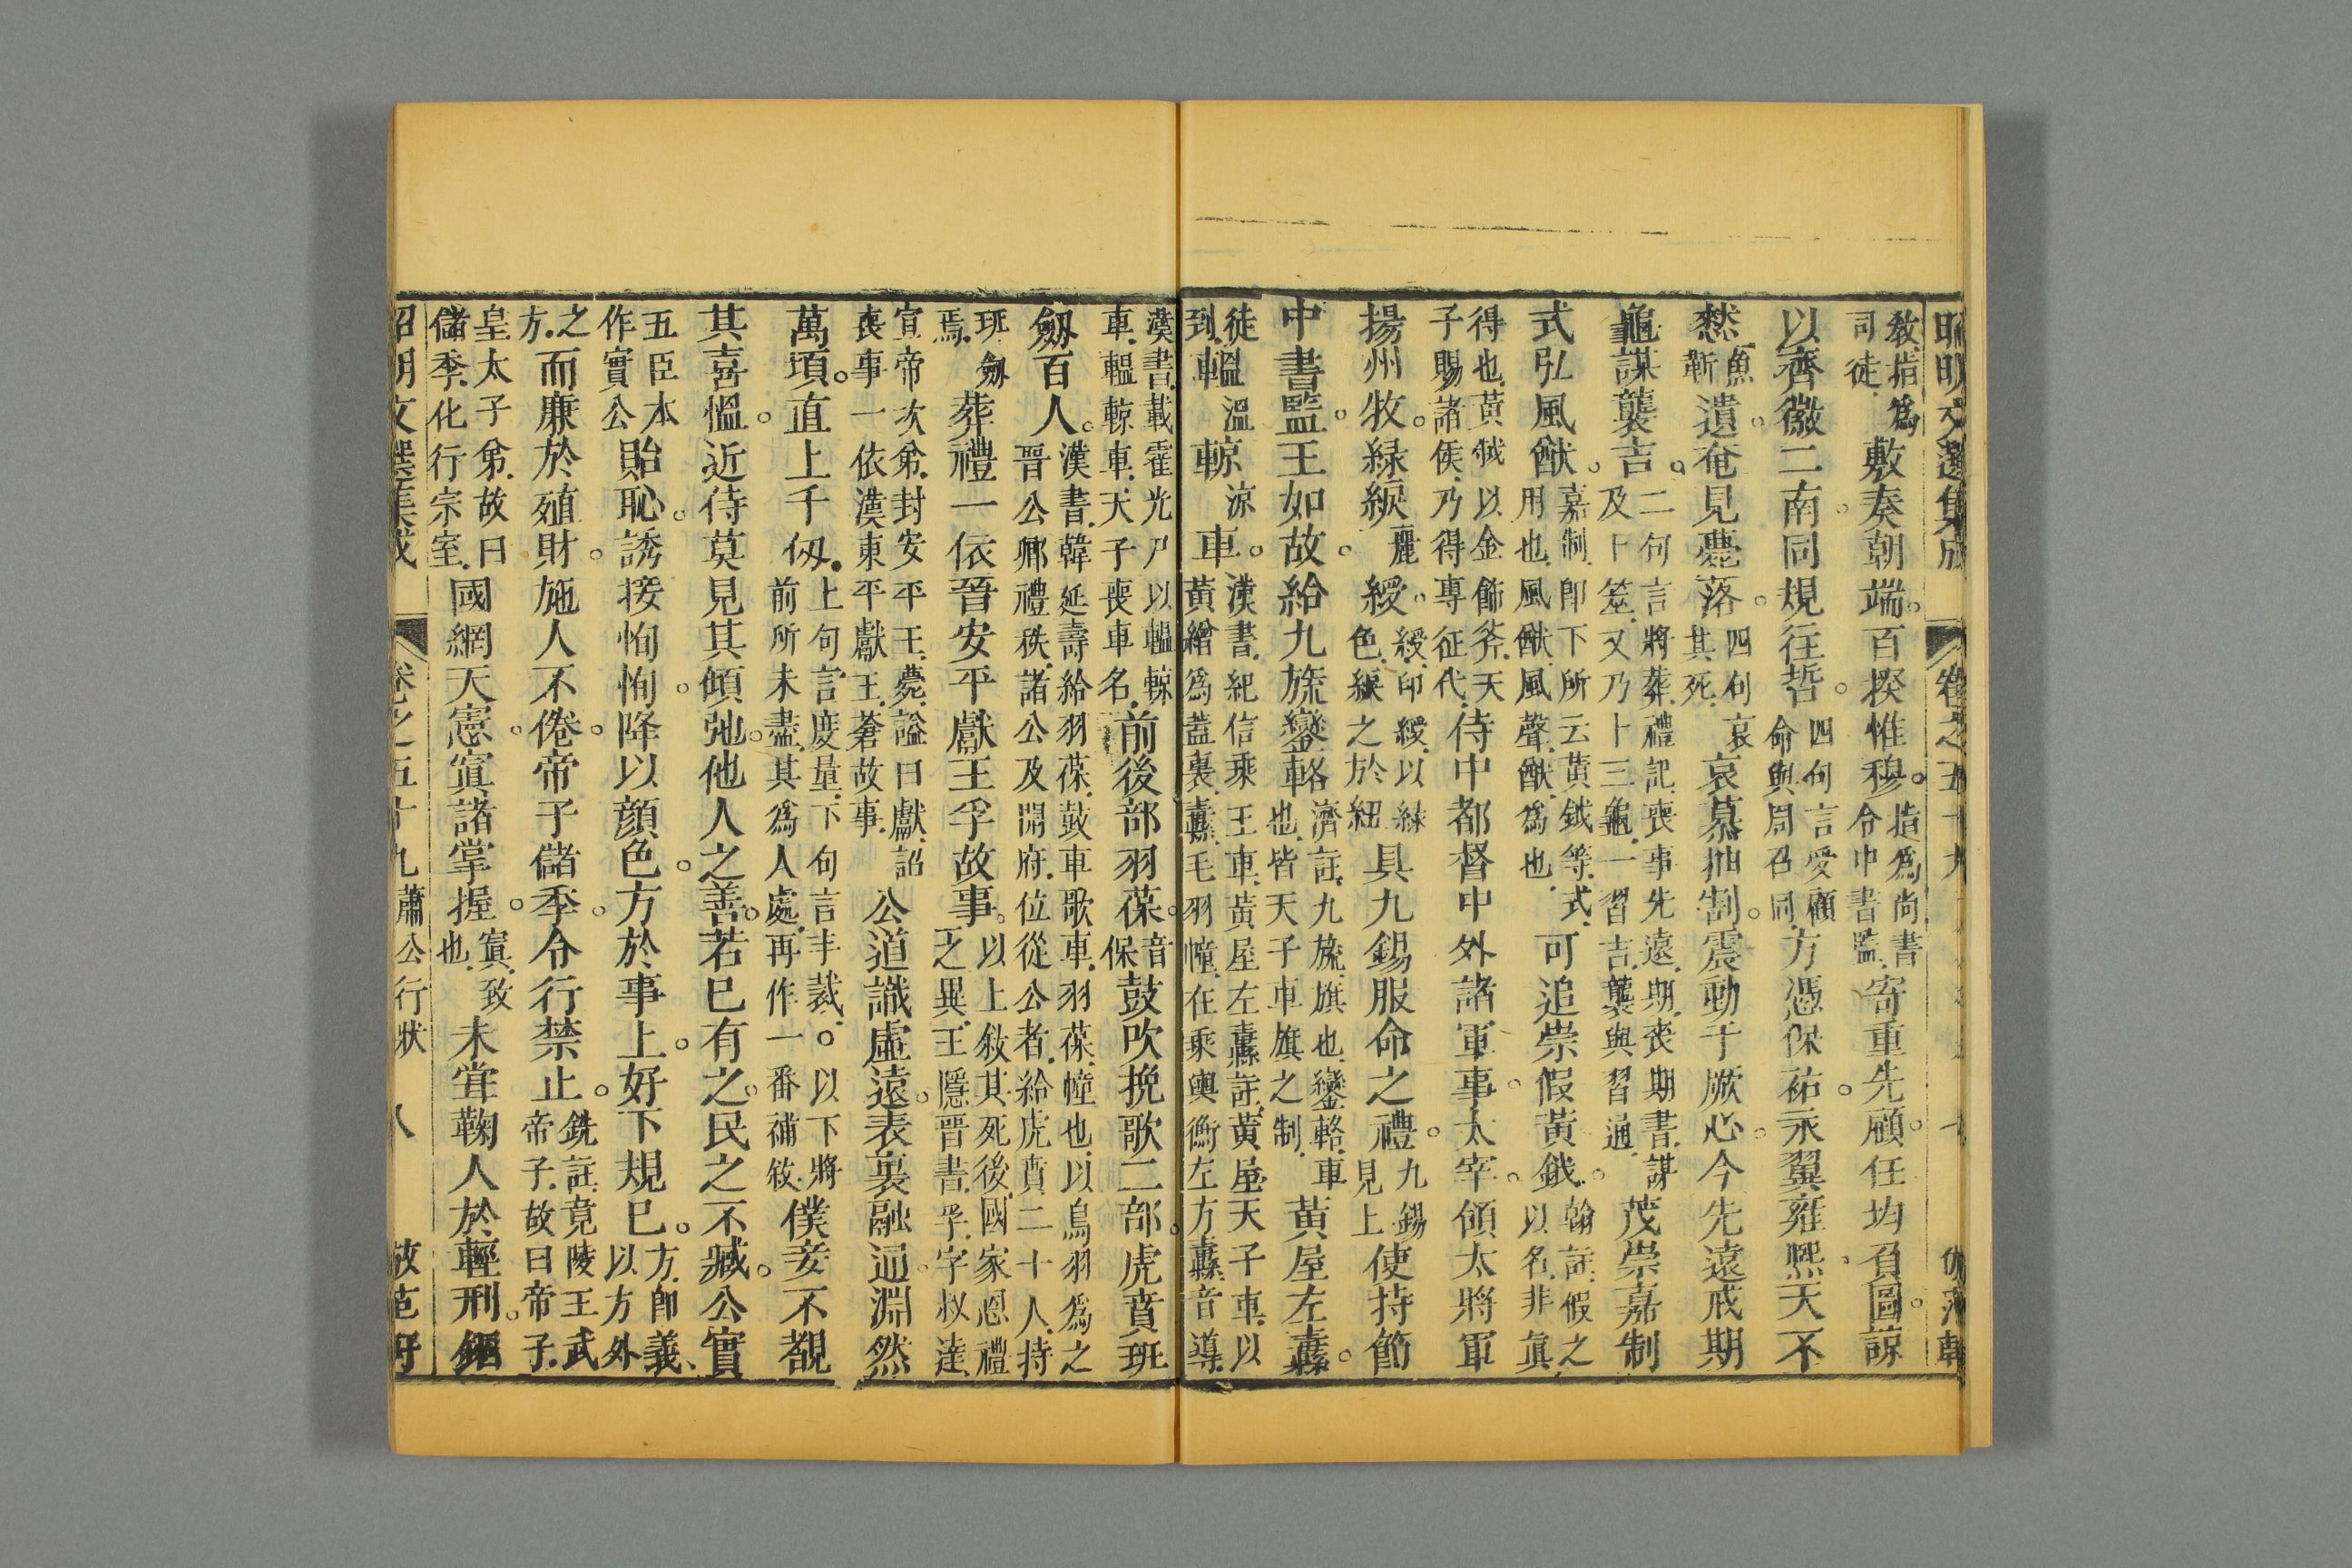 敎指爲司徒敷奏朝端百揆惟穆指爲尚書令中書監寄重先顧任均負圖諒
以齊徽二南同規往哲四句言愛顧命與周召同方憑保祐永翼雍熙天不
憖魚靳遺奄見薨落四句哀其死哀慕抽割震動于厥心今先遠戒期
龜謀襲吉二句言將葬禮記喪事先遠期喪期書謀及卜筮又乃卜三龜一習吉襲與習通茂崇嘉制
式弘風猷嘉制卽下所云黃鉞等式用也風猷風聲猷爲也可追崇假黃鉞翰註假之以名非眞
得也黃鉞以金飾斧天子賜諸侯乃得專征代侍中都督中外諸軍事太宰領太將軍
揚州牧綠綟麗綬綬印綬以綠色綟之於紐具九錫服命之禮九錫見上使持節
中書監王如故給九旒鑾輅濟註九旒旗也鑾輅車也皆天子車旗之制黃屋左纛
徒到轀溫輬涼車漢書紀信乘王車黃屋左纛註黃屋天子車以黃繒爲蓋裏纛毛羽幢在乘輿衡左方纛音導
漢書載霍光尸以轀輬車轀輬車天子喪車名前後部羽葆音保鼓吹挽歌二部虎賁班
劒百人漢書韓延壽給羽葆鼓車歌車羽葆幢也以鳥羽爲之晉公卿禮秩諸公及開府位從公者給虎賁二十人持
班劒焉葬禮一依晉安平獻王孚故事以上敘其死後國家恩禮之異王隱晉書孚字叔達
宣帝次弟封安平王薨謚曰獻詔喪事一依漢東平獻王蒼故事公道識虛遠表裏融通淵然
萬頃直上千仭上句言度量下句言丰裁○以下將前所未盡其爲人處再作一番補敘僕妾不覩
其喜慍近侍莫見其傾弛他人之善若已有之民之不臧公實
五臣本作實公貽恥誘接恂恂降以顏色方於事上好下規已方卽義以方外
之方而廉於殖財施人不倦帝子儲季令行禁止銑註竟陵王武帝子故曰帝子
皇太子弟故曰儲季化行宗室國網天憲寘諸掌握寘致也未甞鞠人於輕刑錮
昭明文選集成 卷之五十九蕭公行狀 八